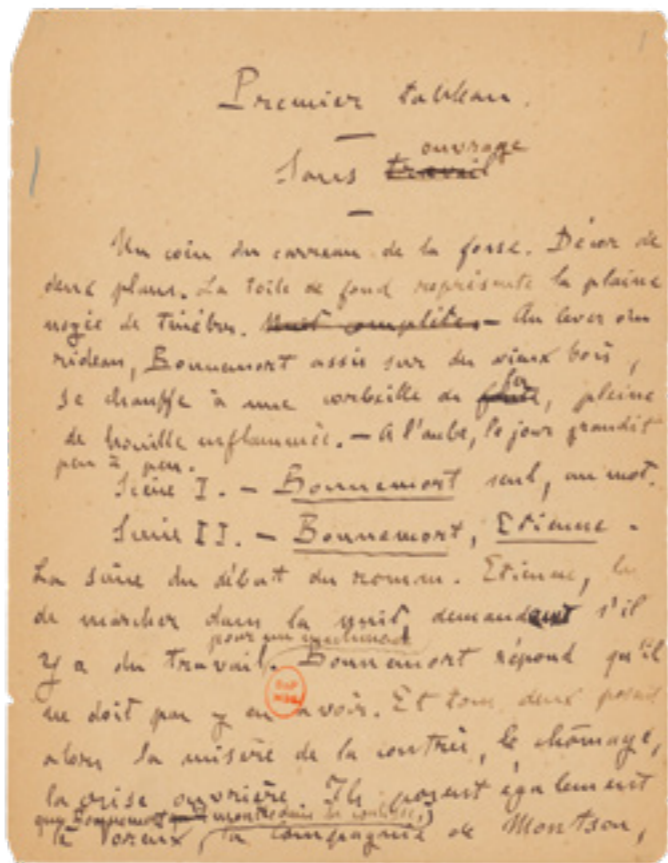 Premier tableau.
Sans travail ouvrage
Un coin du carreau de la fosse. Décor de
deux plans. La toile de fond représente la plaine
noyée de ténèbres. Nuit complète. — Au lever du
rideau, Bonnemort assis sur du vieux bois,
se chauffe à une corbeille de fer, pleine
de houille enflammée. — A l'aube, le jour grandit
peu à peu.
Scène I. — Bonnemort seul, un mot.
Scène II. — Bonnemort, Etienne.
La scène du début du roman. Etienne, las
de marcher dans la nuit, demandant s'il
y a du travail pour un machineur. Bonnemort répond qu'il
ne doit pas y en avoir. Et tous deux posent
alors la misère de la contrée, le chômage,
la crise ouvrière. Ils posent également
que Bonnemort montre dans la coulisse
le Voreux, la Compagnie de Montsou,